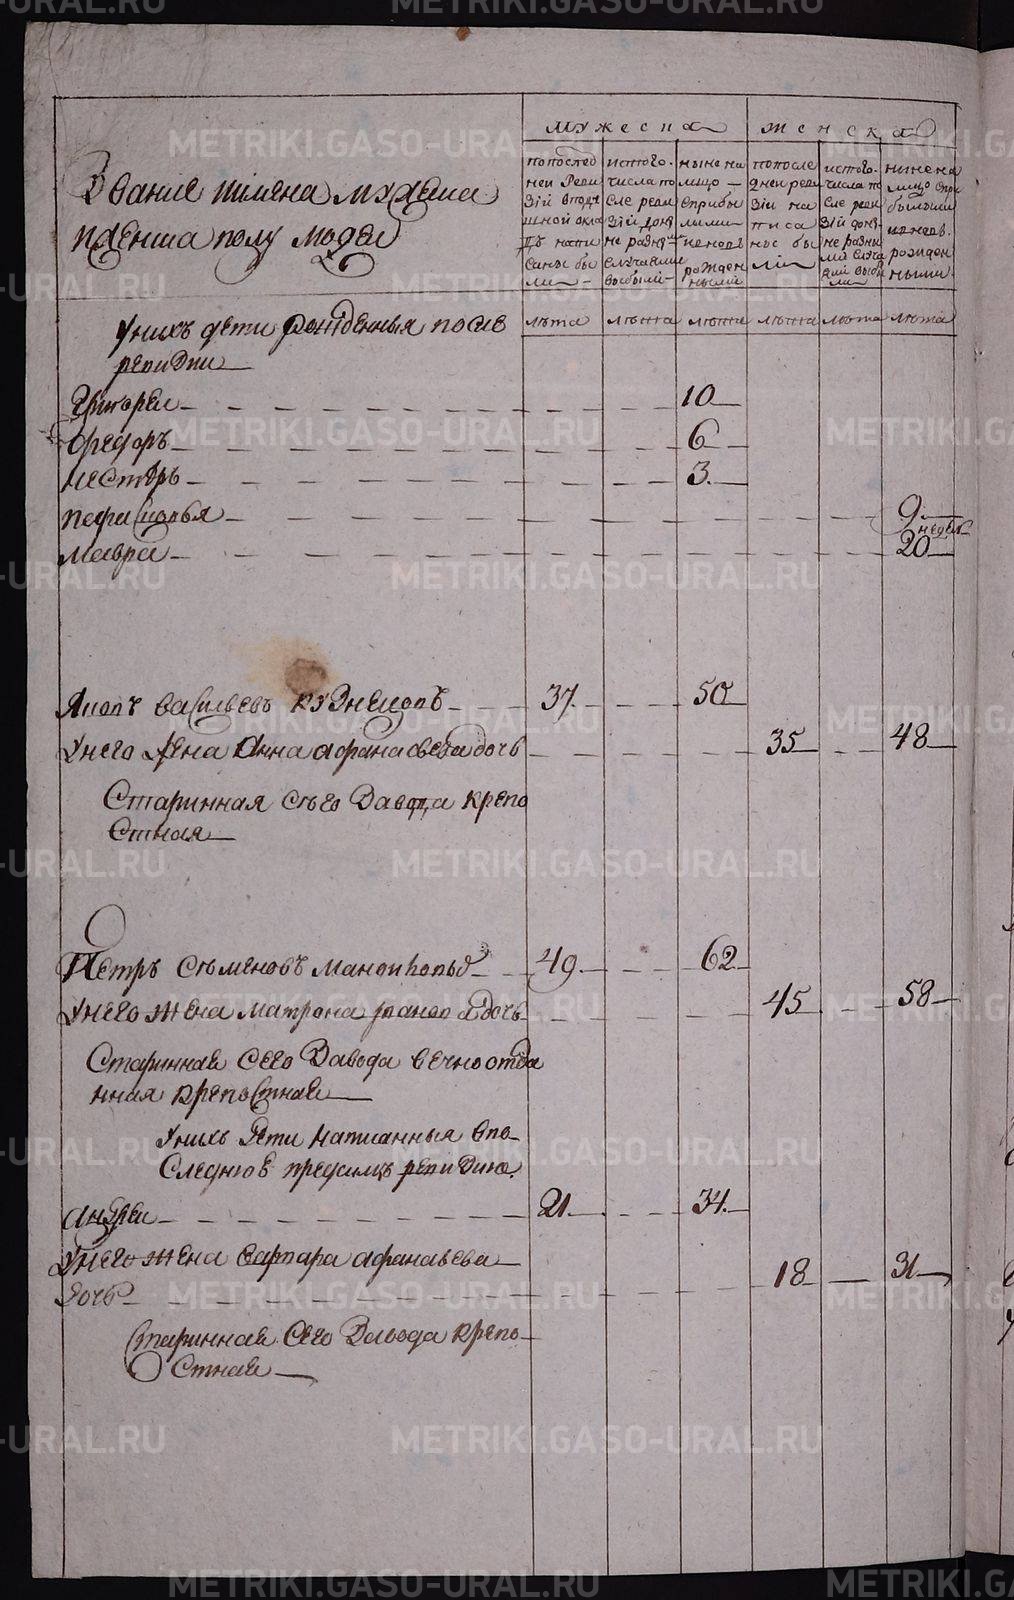 мужеска
женска
Звание иимена мужеска
иженска полу людей
попослед
ней Реви
зіи впода
шной окла
дъ напи
саны бы
ли
истого
числа по
сле реви
зіи до ны
не разны
ми случаями
выбыли
ныне на
лицо
сприбы
лыми
ивновь
рожден
ными
попосле
дней реви
зіи на
писа
ны бы
ли
истого
числа по
сле реви
зіи до ны
не разны
ми случа
ями выбы
ли
ныне на
лицо спри
былыми
ивновь
рожден
ными
лѣта лѣта лѣта лѣта лѣта лѣта
Унихъ дети рожденныя после
ревизии
Григорей 10
Федоръ 6
Нестеръ 3
9
недел
Мавра 20
Яковъ Васильевъ Кузнецовъ 37 50
Унего жена Анна Афанасьева дочь 35 48
Старинная сего завода крепо
стная
Петръ Семеновъ 49 62
Унего жена Матрона дочь 45 58
Старинная сего завода вечноотда
нная крепостная
Унихъ дети написанныя впо
следнюю предсимъ ревизию
Андрей 21 34
Унего жена Варвара Афанасьева
дочь 18 31
Старинная сего завода крепо
стная
METRIKI.GASO-URAL.RU